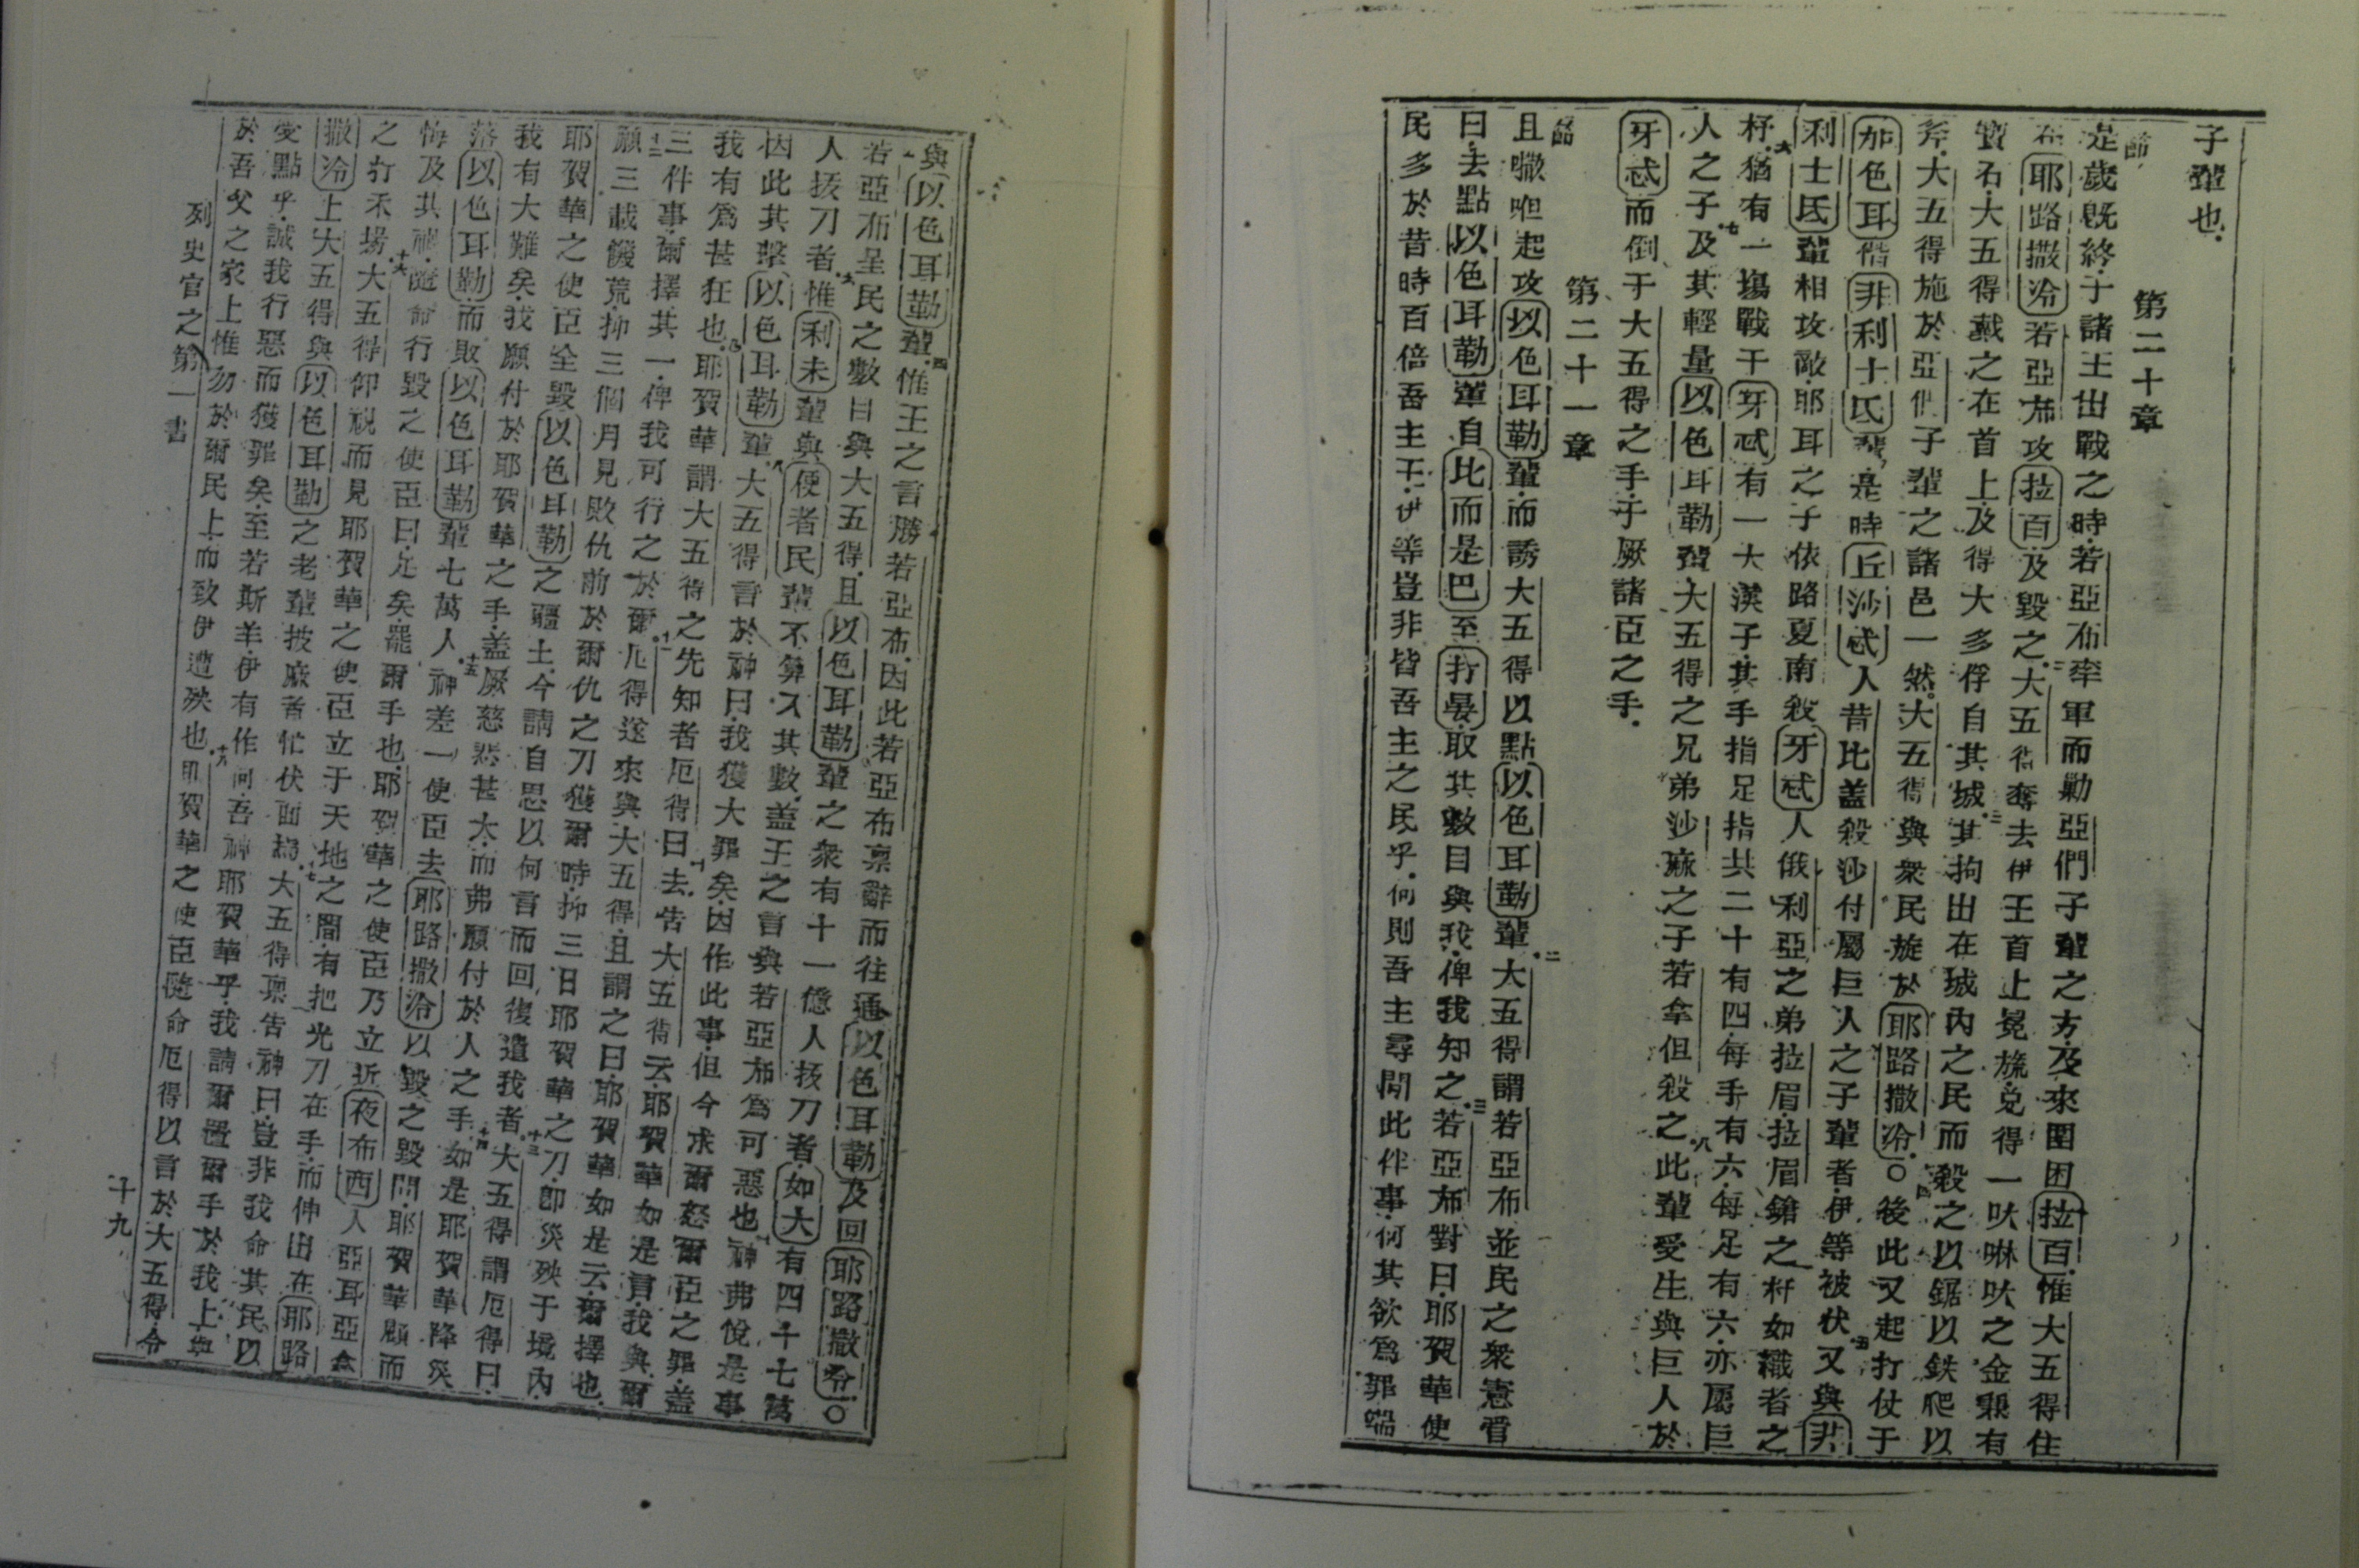 子輩也
第二十章
節
是歲旣終于諸王出戰之時若亞布率軍而勦亞們子輩之方及來圍困拉百惟大五得住
在耶路撒冷若亞布攻拉百及毀之二大五得奪去伊王首上冕旒兌得一吠啉吠之金兼有
寶石大五得戴之在首上及得大多俘自其城三其拘出在城內之民而殺之以鋸以鉄爬以
斧大五得施於亞們子輩之諸邑一然大五得與衆民旋於耶路撒冷○四後此又起打仗于
加色耳偕非利士氏輩是時丘沙忒人昔比蓋殺沙付屬巨人之子輩者伊等被伏五又與非
利士氏輩相攻敵耶耳之子依路夏南殺牙忒人俄利亞之弟拉眉拉眉鎗之杆如織者之
杼六猶有一塲戰于牙忒有一大漢子其手指足指共二十有四每手有六每足有六亦屬巨
人之子七及其輕量以色耳勒輩大五得之兄弟沙麻之子若拿但殺之八此輩受生與巨人於
牙忒而倒于大五得之手于厥諸臣之手
第二十一章
節
且𠹌呾起攻以色耳勒輩而誘大五得以點以色耳勒輩二大五得謂若亞布並民之衆憲督
曰去點以色耳勒輩自比而是巴至打晏取其數目與我俾我知之三若亞布對曰耶賀華使
民多於昔時百倍吾主王伊等豈非皆吾主之民乎何則吾主尋問此件事何其欲爲罪端
與以色耳勒輩四惟王之言勝若亞布因此若亞布稟辭而往通以色耳勒及回耶路撒冷○
五若亞布呈民之數目與大五得且以色耳勒輩之衆有十一億人拔刀者如大有四十七萬
人拔刀者六惟利未輩與便者民輩不算入其數蓋王之言與若亞布爲可惡也七神弗悅是事
因此其擊以色耳勒輩八大五得言於神曰我獲大罪矣因作此事但今求爾恕爾臣之罪蓋
我有爲甚狂也九耶賀華謂大五得之先知者厄得曰十去告大五得云耶賀華如是言我與爾
三件事爾擇其一俾我可行之於爾十一厄得遂來與大五得且謂之曰耶賀華如是云爾擇也
十二願三載饑荒抑三個月見敗仇前於爾仇之刀獲爾時抑三日耶賀華之刀卽災殃于境內
耶賀華之使臣全毀以色耳勒之疆土今請自思以何言而回復遣我者十三大五得謂厄得曰
我有大難矣我願付於耶賀華之手蓋厥慈悲甚大而弗願付於人之手十四如是耶賀華降災
落以色耳勒而敗以色耳勒輩七萬人十五神差一使臣去耶路撒冷以毀之毀間耶賀華顧而
悔及其禍隨命行毀之使臣曰足矣罷爾手也耶賀華之使臣乃立近夜布西人亞耳亞拿
之打禾場十六大五得仰視而見耶賀華之使臣立于天地之間有把光刀在手而伸出在耶路
撒冷上大五得與以色耳勒之老輩披麻者忙伏面爲十七大五得稟告神曰豈非我命其民以
受點乎誠我行惡而獲罪矣至若斯羊伊有作何吾神耶賀華乎我請爾置爾手於我上與
於吾父之家上惟勿於爾民上而致伊遭殃也十八耶賀華之使臣隨命厄得以言於大五得令
列史官之第一書
十九